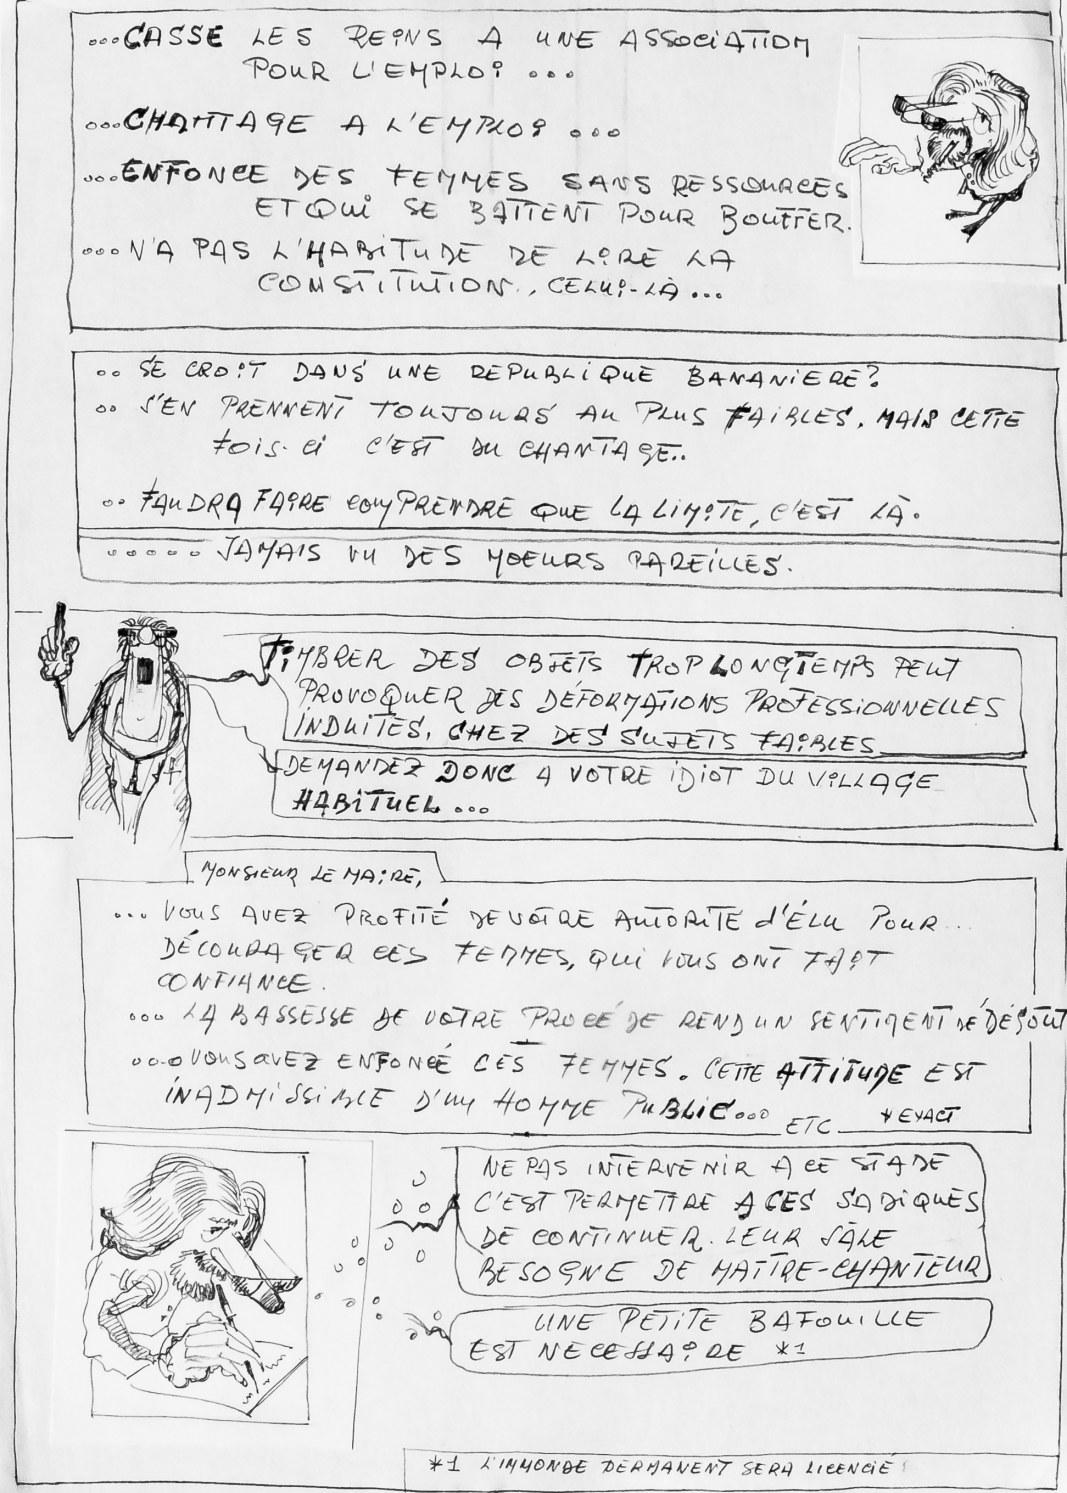 ...CASSE LES REINS A UNE ASSOCIATION
POUR L'EMPLOI ...
...CHANTAGE A L'EMPLOI ...
...ENFONCE DES FEMMES SANS RESSOURCES
ET QUI SE BATTENT POUR BOUFFER.
...N'A PAS L'HABITUDE DE LIRE LA
CONSTITUTION.. CELUI-LÀ...
.. SE CROIT DANS UNE REPUBLIQUE BANANIERE?
.. S'EN PRENNENT TOUJOURS AU PLUS FAIBLES. MAIS CETTE
FOIS-CI C'EST DU CHANTAGE..
.. FAUDRA FAIRE COMPRENDRE QUE LA LIMITE, C'EST LÀ.
..... JAMAIS VU DES MOEURS PAREILLES.
TIMBRER DES OBJETS TROP LONGTEMPS PEUT
PROVOQUER DES DÉFORMATIONS PROFESSIONNELLES
INDUITES, CHEZ DES SUJETS FAIBLES
DEMANDEZ DONC A VOTRE IDIOT DU VILLAGE
HABITUEL...
MONSIEUR LE MAIRE,
... VOUS AVEZ PROFITÉ DE VOTRE AUTORITE d'ÉLU POUR...
DÉCOURAGER CES FEMMES, QUI VOUS ONT FAIT
CONFIANCE.
... LA BASSESSE DE VOTRE PROCÉDÉ REND UN SENTIMENT DE DÉGOÛT
...VOUS AVEZ ENFONCÉ CES FEMMES. CETTE ATTITUDE EST
INADMISSIBLE D'UN HOMME PUBLIC...
ETC *EXACT
NE PAS INTERVENIR A CE STADE
C'EST PERMETTRE A CES SADIQUES
DE CONTINUER. LEUR SÂLE
BESOGNE DE MAÎTRE-CHANTEUR
UNE PETITE BAFOUILLE
EST NECESSAIRE *1
*1 L'IMMONDE PERMANENT SERA LICENCIÉ